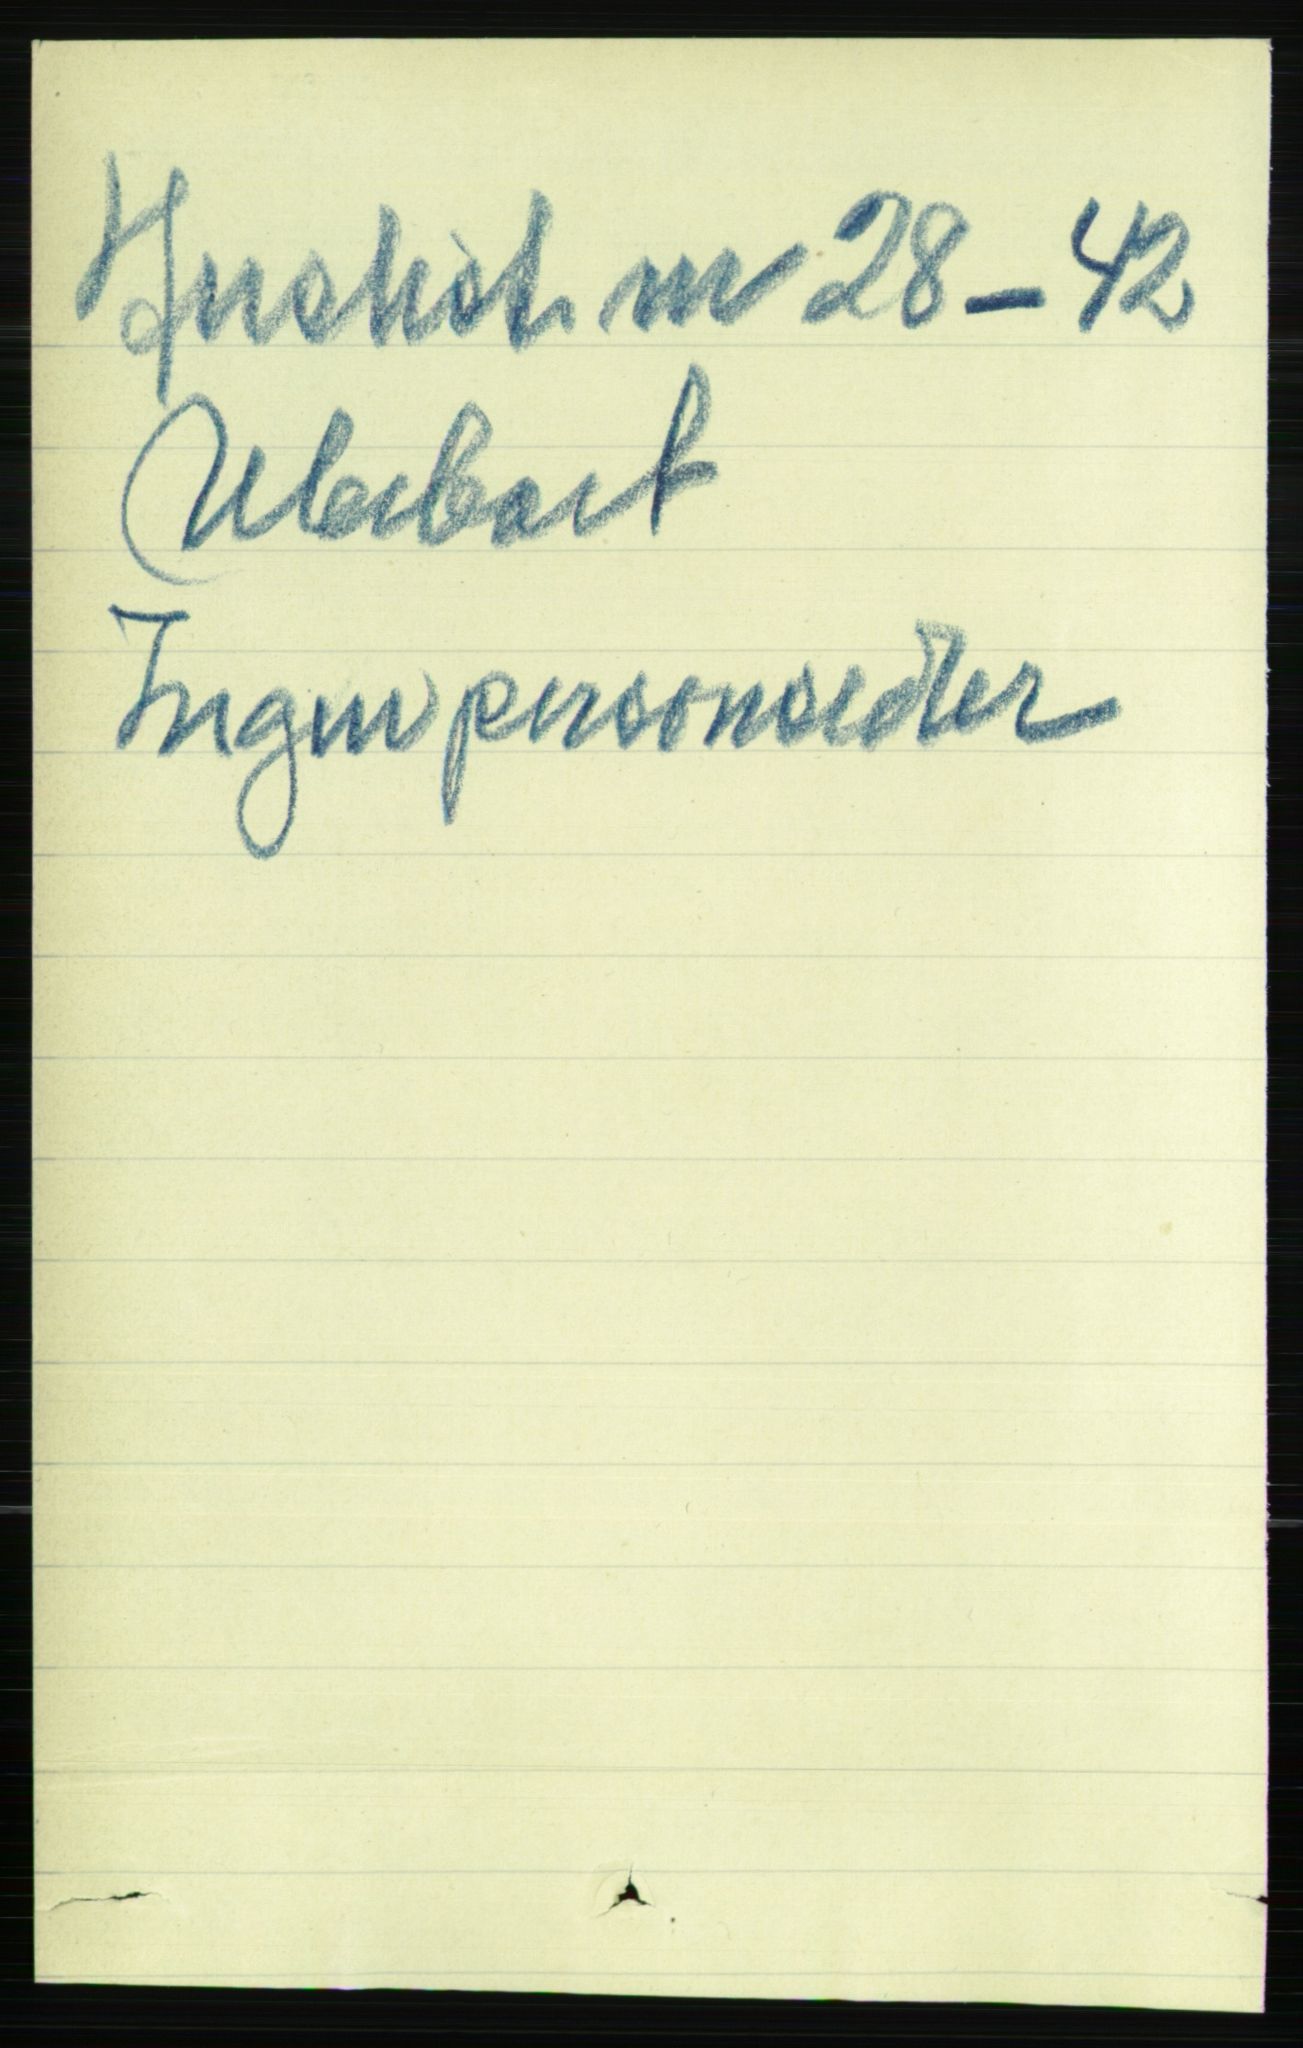 Huskist. nr 28-42
Ubebodt
Ingen personsedler